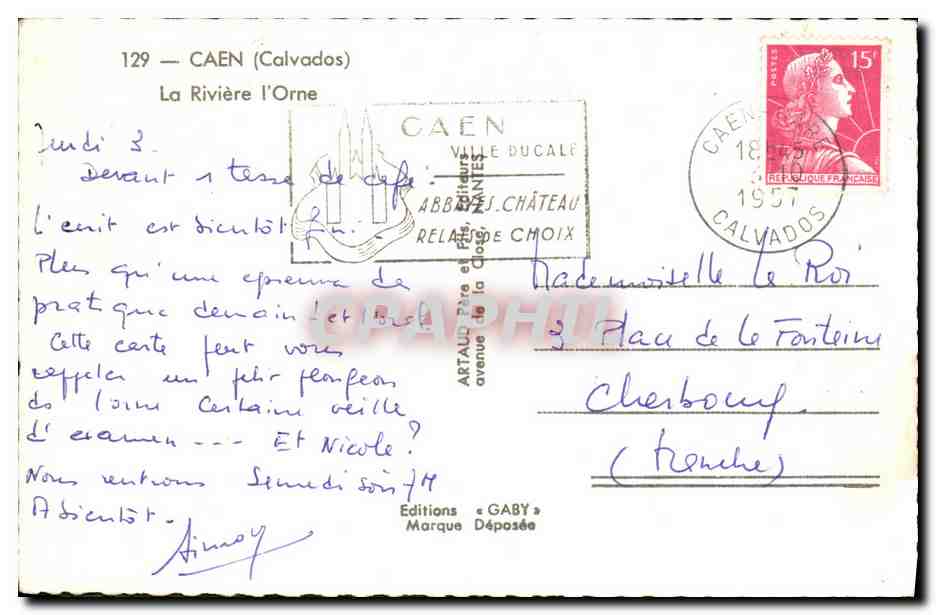 129 — CAEN (Calvados)
La Rivière l'Orne
CAEN
VILLE DUCALE
ABBAYES.CHÂTEAU
RELAIS DE CHOIX
CAEN
18
1957
CALVADOS
POSTES
15F
REPUBLIQUE FRANCAISE
Jeudi 3.
Devant 1 tasse de café.
L'écrit est bientôt fini.
Plus qu'une épreuve de
pratique demain et l'oral.
Cette carte peut vous
rappeler un petit plongeon
ds l'orne certaine veille
d'examen --- Et Nicole?
Nous rentrons Samedi soir
A bientôt.
ARTAUD Père et Fils, Editeurs
avenue de la Close, NANTES
Mademoiselle Le Roi
3 Place de la Fontaine
Cherbourg.
(Manche)
Editions « GABY »
Marque Déposée
CPAPHIL